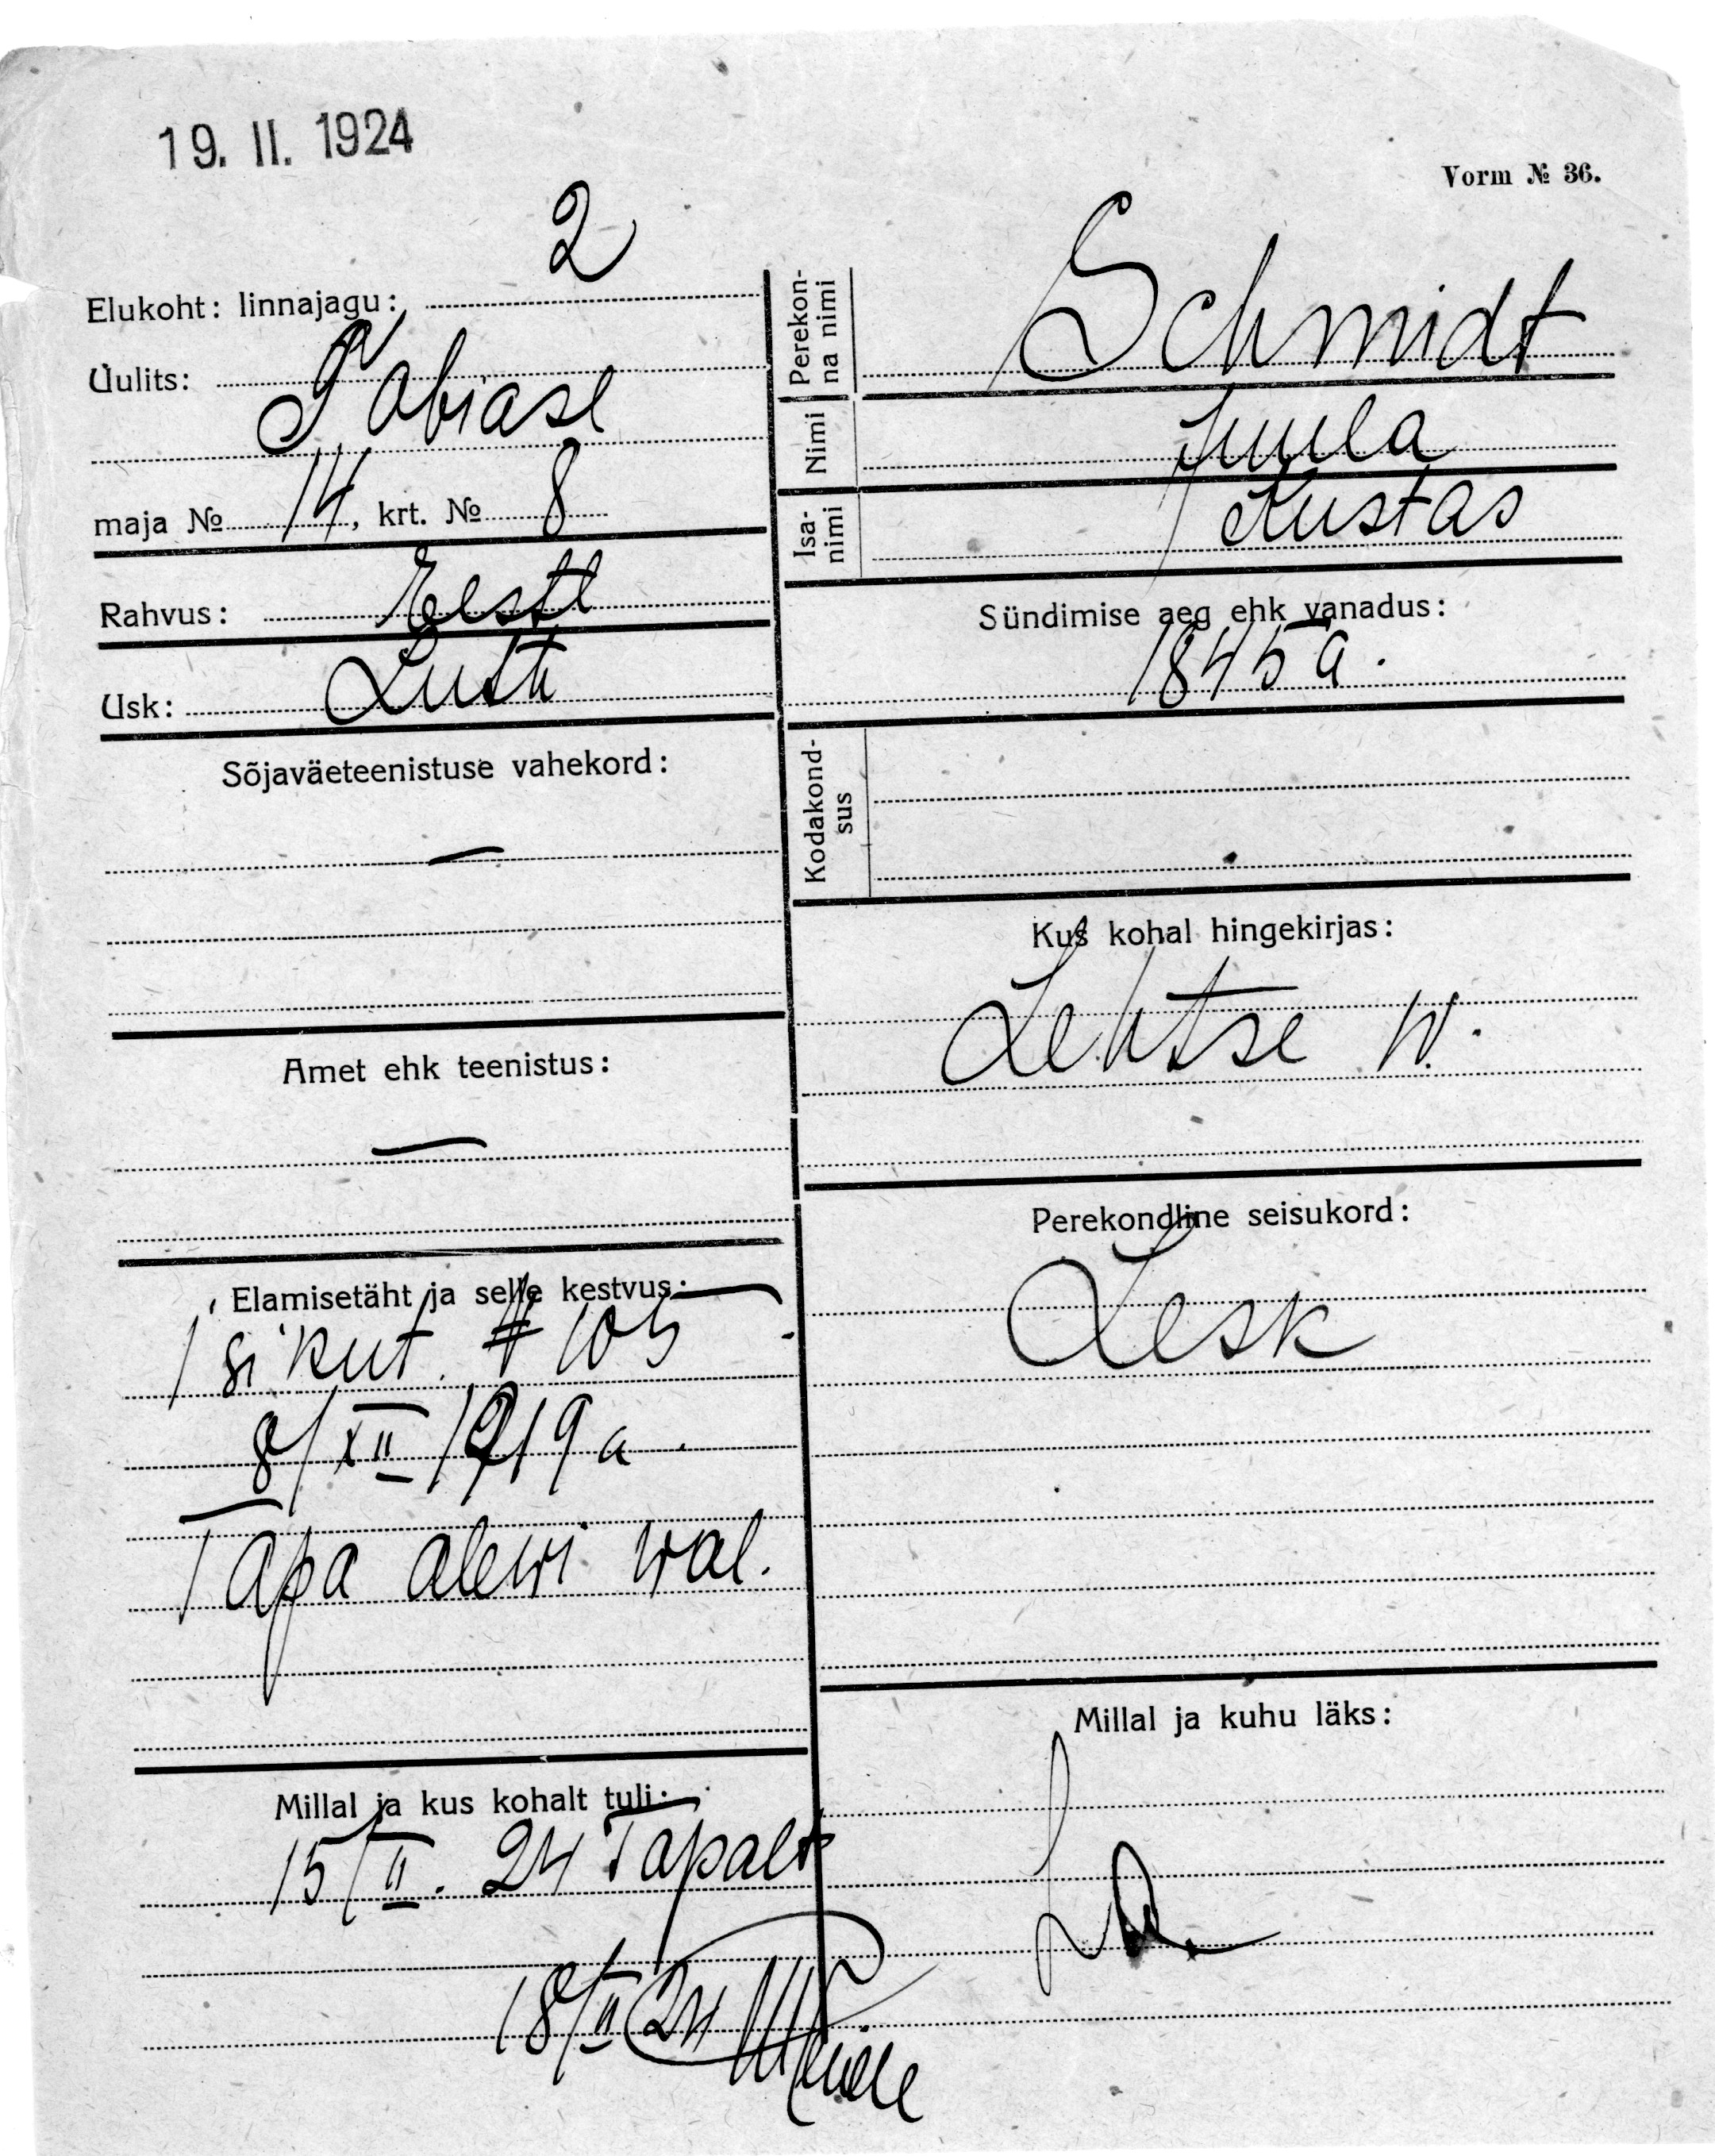 19. II. 1924
Vorm № 36.
Elukoht: linnajagu: 2
Uulits: Tobiase
maja № 14, krt. № 8
Rahvus: Eesti
Usk: Luth
Sõjaväeteenistuse vahekord:
—
Amet ehk teenistus:
—
Elamisetäht ja selle kestvus:
Isikut. # 105
8/XII 1919 a.
Tapa alewi wal.
Millal ja kus kohalt tuli:
15/II. 24 Tapalt
18/II 24
Perekonna nimi Schmidt
Nimi Juula
Isanimi Kustas
Sündimise aeg ehk vanadus:
1845 a.
Kodakondsus
Kus kohal hingekirjas:
Lehtse w.
Perekondline seisukord:
Lesk
Millal ja kuhu läks: